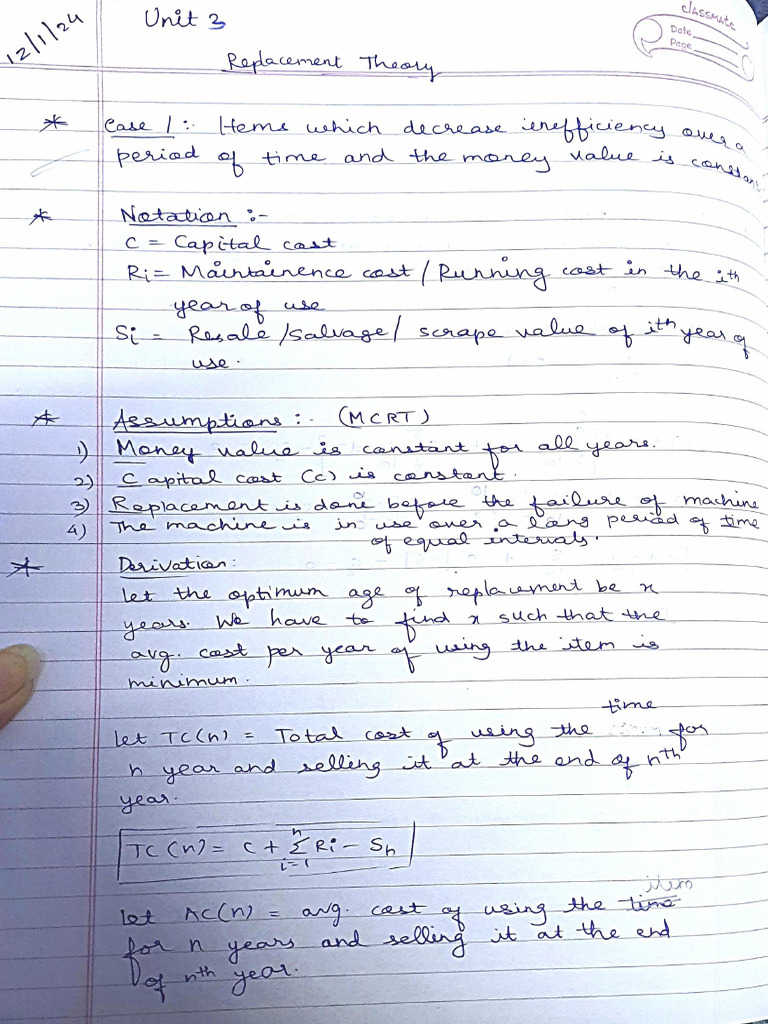 12/1/24
Unit 3
classmate
Date
Page
Replacement Theory
* Case 1:- Items which decrease inefficiency over a
period of time and the money value is constant
* Notation :-
C = Capital cost
Ri = Maintainence cost / Running cost in the ith
year of use
Si = Resale /salvage/ scrape value of ith year of
use.
* Assumptions :- (MCRT)
1) Money value is constant for all years.
2) Capital cost (c) is constant.
3) Replacement is done before the failure of machine
4) The machine is in use over a long period of time
of equal intervals.
* Derivation:
let the optimum age of replacement be x
years. We have to find x such that the
avg. cost per year of using the item is
minimum.
time
let TC(n) = Total cost of using the for
n year and selling it at the end of nth
year.
TC(n) = C + n∑i=1 Ri - Sn
item
let AC(n) = avg. cost of using the time
for n years and selling it at the end
of nth year.